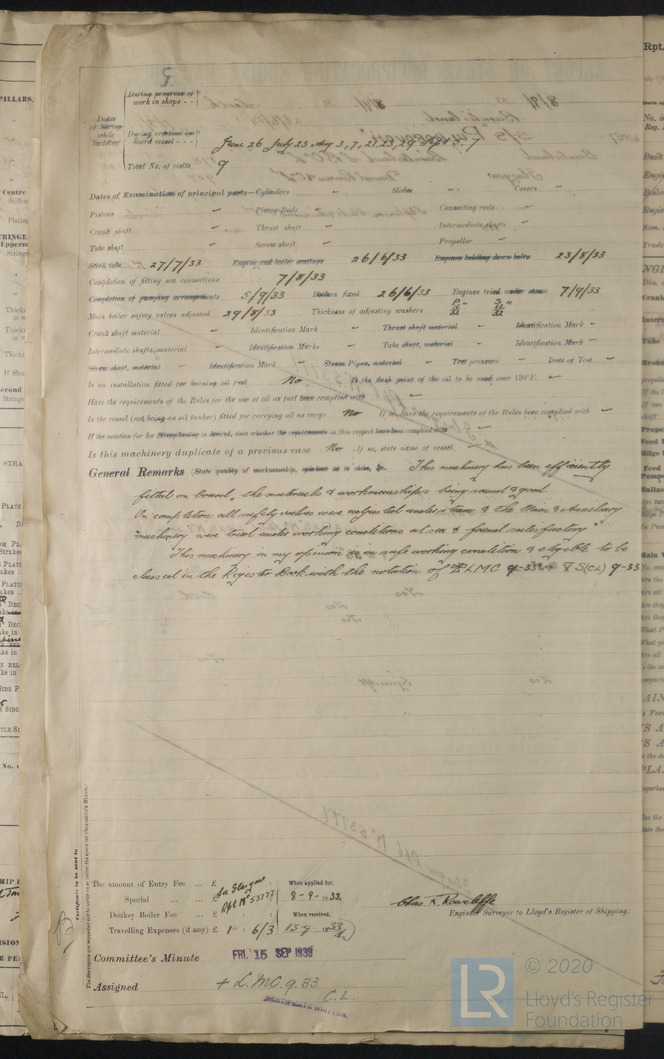 During progress of
work in shops - -
Dates
of Survey
while
building
During erection on
board vessel - - -
June 26 July 23 Aug 3, 7, 21, 23, 29 Sept 5. 7
Total No. of visits. 9
Dates of Examination of principal parts—Cylinders - Slides - Covers -
Pistons - Piston Rods - Connecting rods -
Crank shaft - Thrust shaft - Intermediate shafts -
Tube shaft - Screw shaft - Propeller -
Stern tube 27/7/33 Engine and boiler seatings 26/6/33 Engines holding down bolts 23/8/33
Completion of fitting sea connections 7/8/33
Completion of pumping arrangements 5/9/33 Boilers fixed 26/6/33 Engines tried under steam 7/9/33
Main boiler safety valves adjusted 29/8/33 Thickness of adjusting washers
Crank shaft material - Identification Mark - Thrust shaft material - Identification Mark -
Intermediate shafts, material - Identification Marks - Tube shaft, material - Identification Mark -
Screw shaft, material - Identification Mark - Steam Pipes, material - Test pressure - Date of Test -
Is an installation fitted for burning oil fuel No Is the flash point of the oil to be used over 150°F. -
Have the requirements of the Rules for the use of oil as fuel been complied with -
Is the vessel (not being an oil tanker) fitted for carrying oil as cargo No If so, have the requirements of the Rules been complied with -
If the notation for Ice Strengthening is desired, state whether the requirements in this respect have been complied with -
Is this machinery duplicate of a previous case No If so, state name of vessel -
General Remarks (State quality of workmanship, opinions as to class, &c. This machinery has been efficiently
fitted on board, the materials & workmanship being sound & good.
On completion all safety valves were adjusted under steam & the Main & Auxiliary
machinery were tried under working conditions at sea & found satisfactory
This machinery in my opinion is in safe working condition & eligible to be
classed in the Register Book with the notation of + LMC 9-33 & TS(CL) 9-33
Certificate to be sent to
The amount of Entry Fee ... £ See Glasgow
Special ... £ Rpt No 53777
Donkey Boiler Fee ... £
Travelling Expenses (if any) £ 1 : 6/3
When applied for,
8-9-1933.
When received,
Chas R. Rowcliffe
Engineer Surveyor to Lloyd's Register of Shipping.
Committee's Minute FRI. 15 SEP 1933
Assigned + L.M.C. 9.33
C.L.
CERTIFICATE WRITTEN
LR
© 2020
Lloyd's Register
Foundation